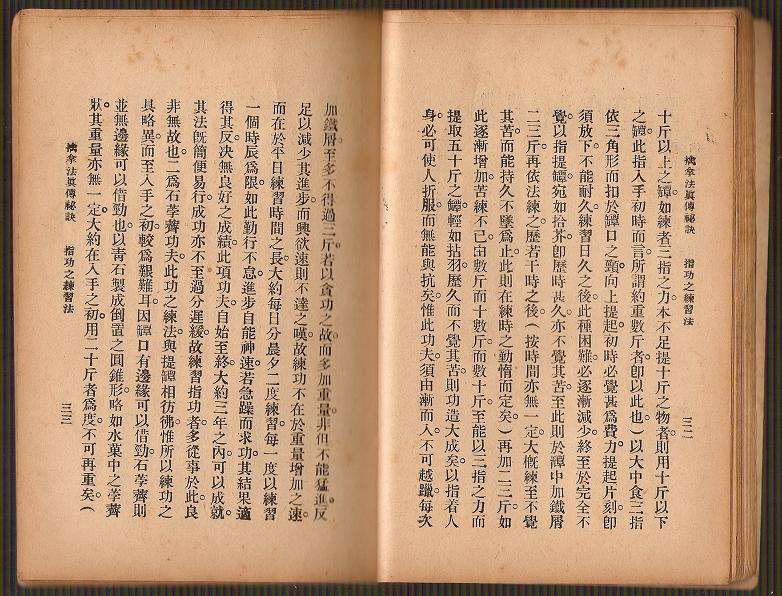 擒拿法眞傳祕訣　指功之練習法　三二
十斤以上之罈。如練者三指之力。本不足提十斤之物者。則用十斤以下
之罈。此指入手初時而言。所謂約重數斤者。卽以此也）以大中食三指。
依三角形而扣於罈口之頸。向上提起。初時必覺甚爲費力。提起片刻。卽
須放下。不能耐久。練習日久之後。此種困難。必逐漸減少。終至於完全不
覺。以指提罈。宛如拾芥。卽歷時甚久。亦不覺其苦。至此則於罈中加鐵屑
二三斤。再依法練之。歷若干時之後。（按時間亦無一定。大槪練至不覺
其苦。而能持久不墜爲止。此則在練時之勤惰而定矣）再加二三斤。如
此逐漸增加。苦練不已。由數斤而十數斤而數十斤。至能以三指之力。而
提取五十斤之罈。輕如拈羽。歷久而不覺其苦。則功造大成矣。以指着人
身。必可使人折服。而無能與抗矣。惟此功夫。須由漸而入。不可越躐。每次
加鐵屑。至多不得過三斤。若以貪功之故。而多加重量。非但不能猛進。反
足以減少其進步。而興欲速則不達之嘆。故練功不在於重量增加之速。
而在於平日練習時間之長。大約每日分晨夕二度練習。每一度以練習
一個時辰爲限。如此勤行不怠。進步自能神速。若急躁而求功。其結果適
得其反。決無良好之成績。此項功夫。自始至終。大約三年之內。可以成就。
其法旣簡便易行。成功亦不至過分遲緩。故練習指功者。多從事於此。良
非無故也。二爲石荸薺功夫。此功之練法。與提罈相彷彿。惟所以練功之
具略異。而至入手之初較爲艱難耳。因罈口有邊緣可以借勁。石荸薺則
並無邊緣可以借勁也。以靑石製成倒置之圓錐形。略如水菓中之荸薺
狀。其重量亦無一定。大約在入手之初。用二十斤者爲度。不可再重矣（
擒拿法眞傳祕訣　指功之練習法　三三